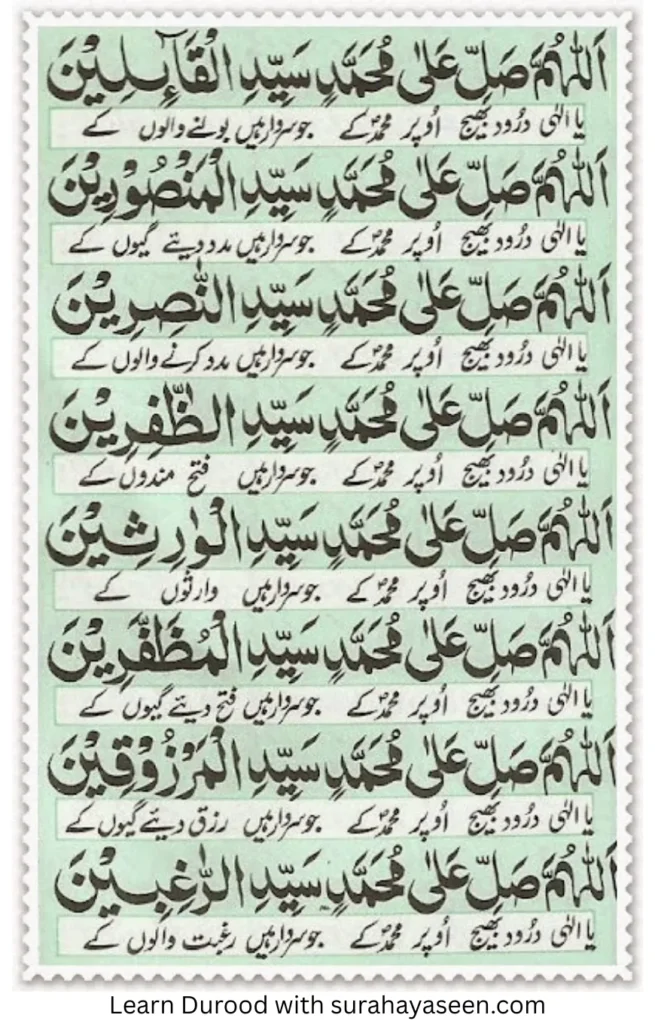 اَللّٰهُمَّ صَلِّ عَلٰی مُحَمَّدٍ سَیِّدِ الْقَآئِلِیْنَ
یا الٰہی درُود بھیج اُوپر محمدؐ کے جو سردار ہیں بولنے والوں کے
اَللّٰهُمَّ صَلِّ عَلٰی مُحَمَّدٍ سَیِّدِ الْمَنْصُوْرِیْنَ
یا الٰہی درُود بھیج اُوپر محمدؐ کے جو سردار ہیں مدد دیئے گیوں کے
اَللّٰهُمَّ صَلِّ عَلٰی مُحَمَّدٍ سَیِّدِ النّٰصِرِیْنَ
یا الٰہی درُود بھیج اُوپر محمدؐ کے جو سردار ہیں مدد کرنے والوں کے
اَللّٰهُمَّ صَلِّ عَلٰی مُحَمَّدٍ سَیِّدِ الظّٰفِرِیْنَ
یا الٰہی درُود بھیج اُوپر محمدؐ کے جو سردار ہیں فتح مندوں کے
اَللّٰهُمَّ صَلِّ عَلٰی مُحَمَّدٍ سَیِّدِ الْوٰرِثِیْنَ
یا الٰہی درُود بھیج اُوپر محمدؐ کے جو سردار ہیں وارثوں کے
اَللّٰهُمَّ صَلِّ عَلٰی مُحَمَّدٍ سَیِّدِ الْمُظَفَّرِیْنَ
یا الٰہی درُود بھیج اُوپر محمدؐ کے جو سردار ہیں فتح دیئے گیوں کے
اَللّٰهُمَّ صَلِّ عَلٰی مُحَمَّدٍ سَیِّدِ الْمَرْزُوْقِیْنَ
یا الٰہی درُود بھیج اُوپر محمدؐ کے جو سردار ہیں رزق دیئے گیوں کے
اَللّٰهُمَّ صَلِّ عَلٰی مُحَمَّدٍ سَیِّدِ الرّٰغِبِیْنَ
یا الٰہی درُود بھیج اُوپر محمدؐ کے جو سردار ہیں رغبت والوں کے
Learn Durood with surahayaseen.com